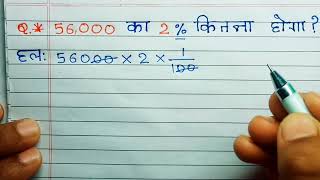 Q.* 56,000 का 2 % कितना होगा ?
हल: 56000 × 2 × 1/100